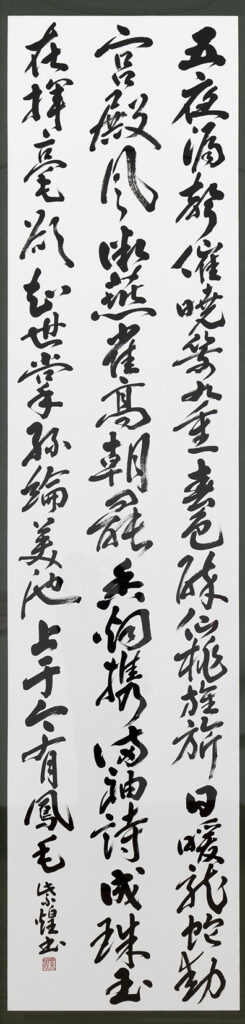 五夜漏聲催曉箭九重春色醉仙桃旌旂日暖龍蛇動
宮殿風微燕雀高朝罷香烟携滿袖詩成珠玉
在揮毫欲知世掌絲綸美池上于今有鳳毛 紫煌書